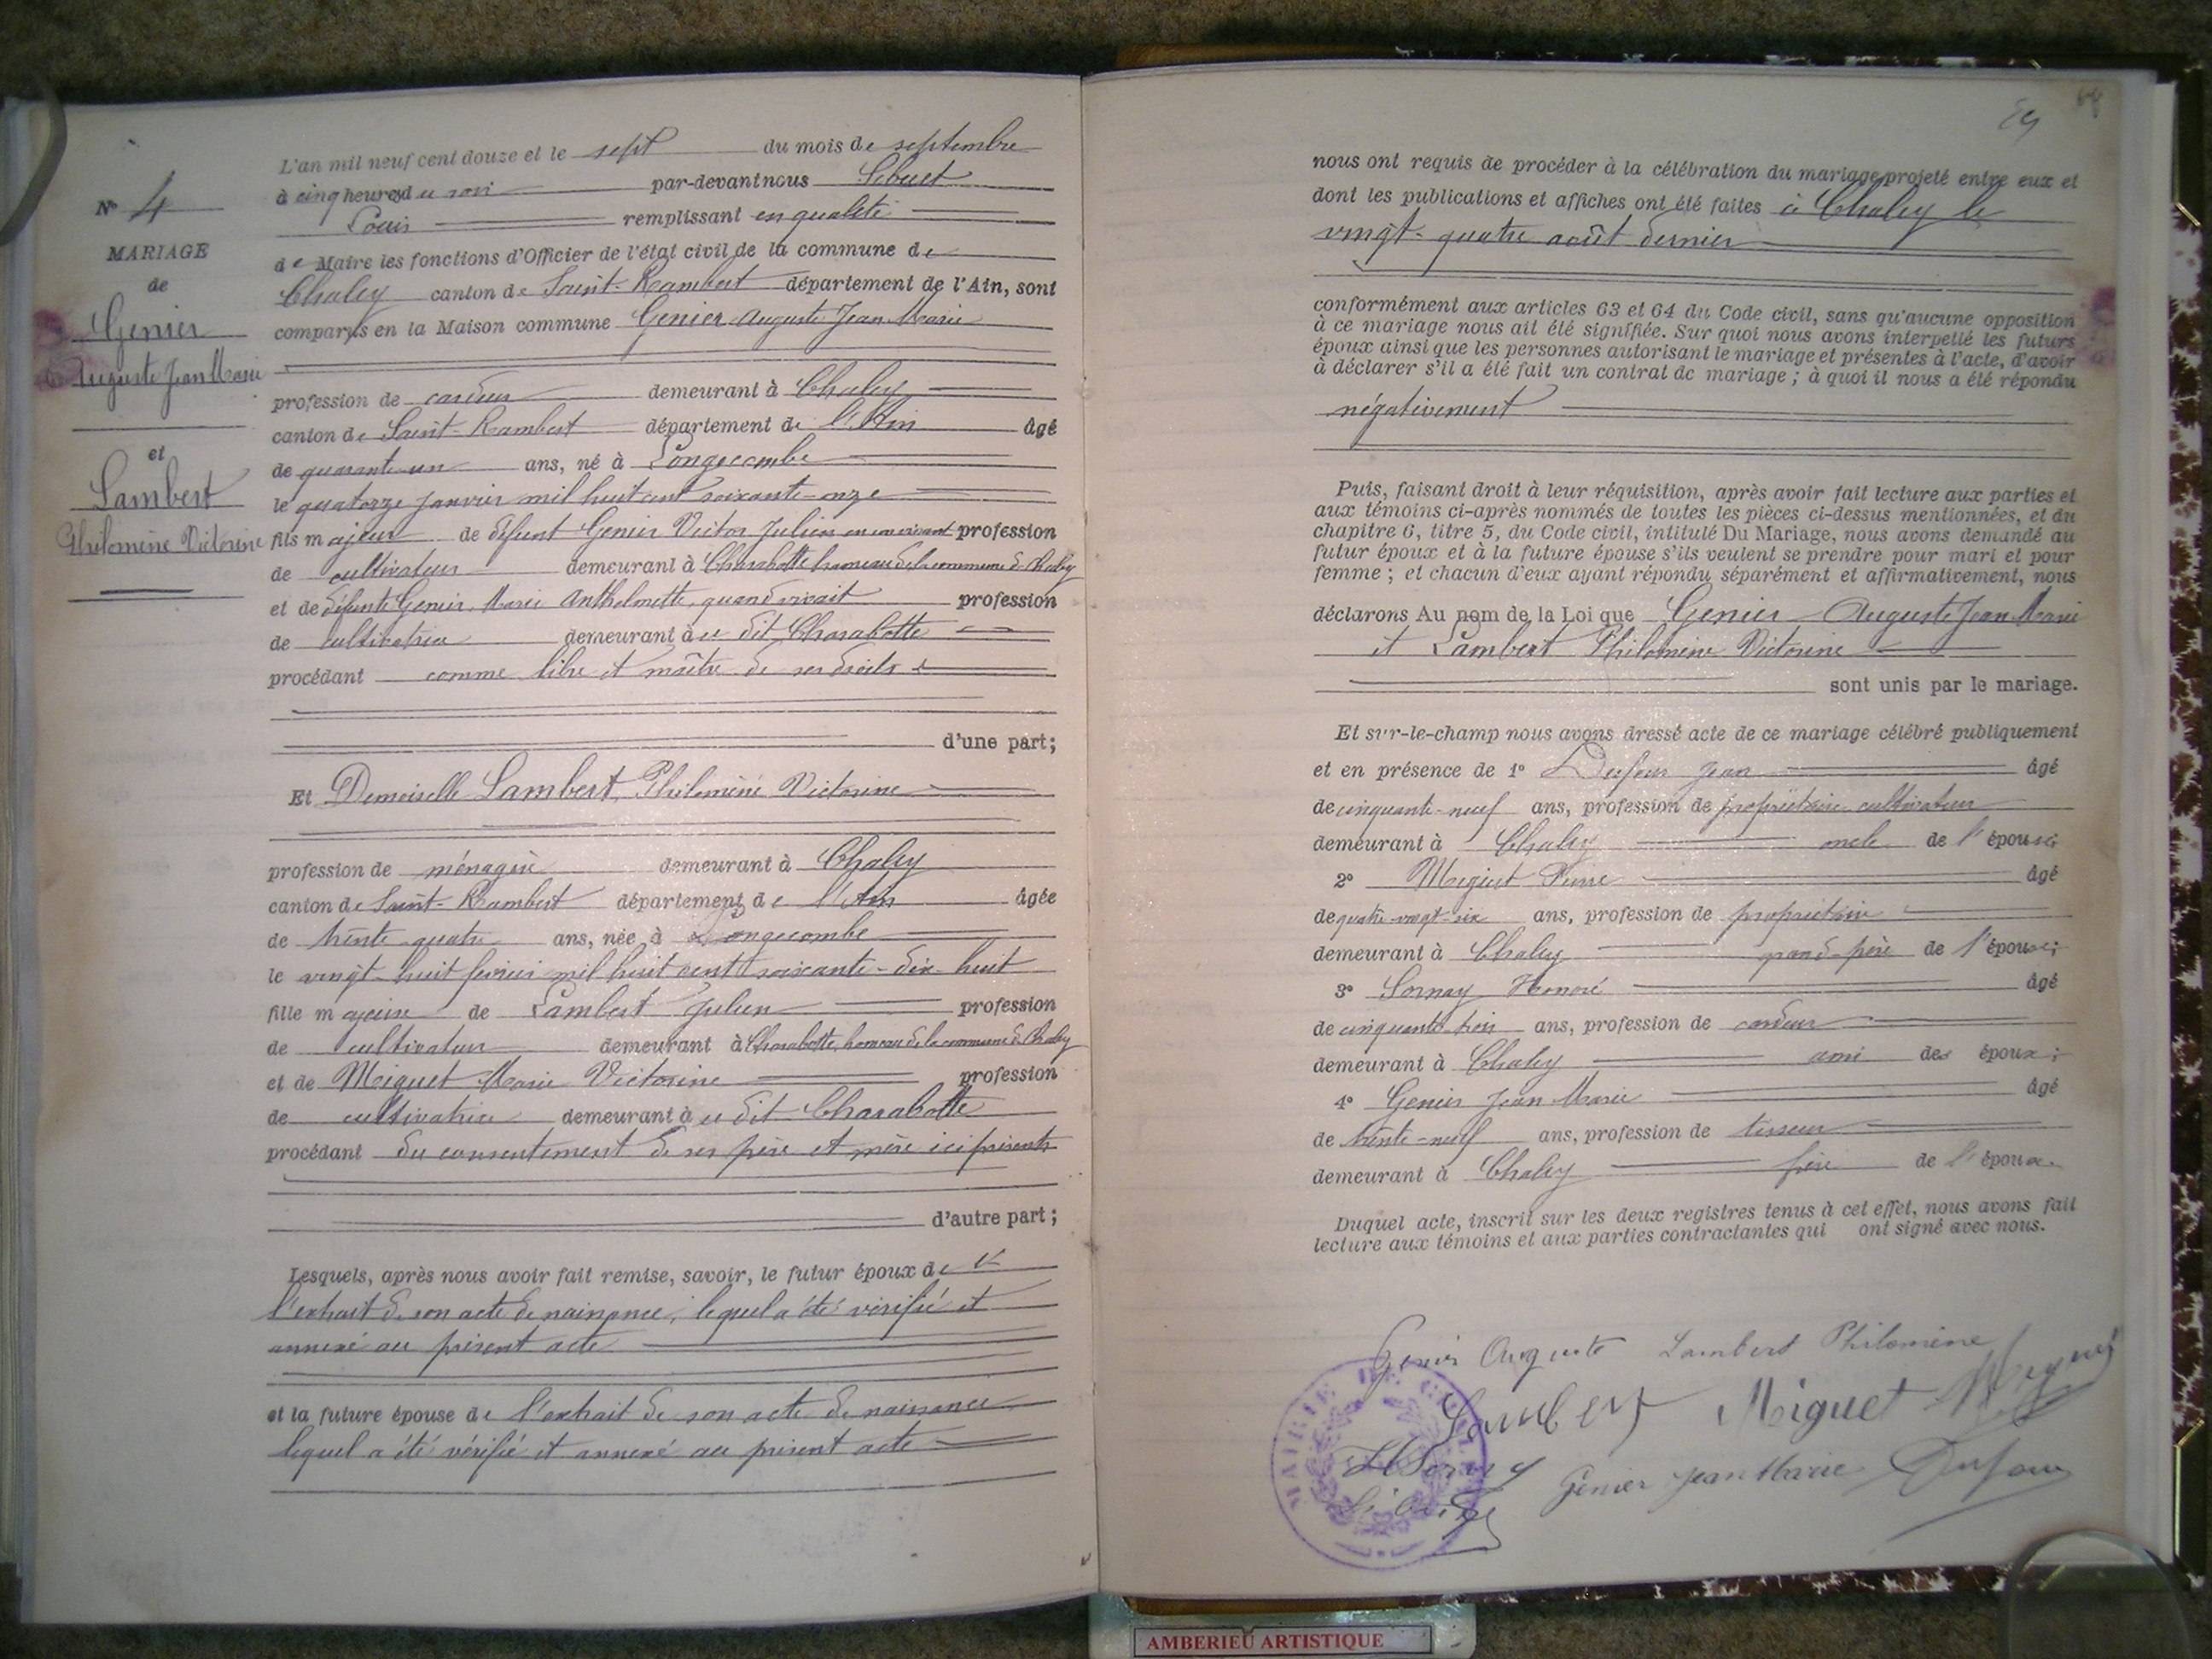 L'an mil neuf cent douze et le sept du mois de septembre
à cinq heures du soir par-devant nous
Louis remplissant en qualité
de Maire les fonctions d'Officier de l'état civil de la commune de
Chaley canton de Saint-Rambert département de l'Ain, sont
comparus en la Maison commune Genier Auguste Jean Marie
profession de cardeur demeurant à Chaley
canton de Saint-Rambert département de l'Ain âgé
de quarante-un ans, né à Longecombe
le quatorze janvier mil huit cent soixante-onze
fils majeur de défunt Genier Victor Julien en son vivant profession
de cultivateur demeurant à Charabotte hameau de la commune de Chaley
et de défunte Genier Marie Anthelmette, quand vivait profession
de cultivatrice demeurant à u dit Charabotte
procédant comme libre et maître de ses droits
d'une part;
Et Demoiselle Lambert, Philomène Victorine
profession de ménagère demeurant à Chaley
canton de Saint-Rambert département de l'Ain âgée
de trente-quatre ans, née à Longecombe
le vingt-huit février mil huit cent soixante-dix-huit
fille majeure de Lambert Julien profession
de cultivateur demeurant à Charabotte, hameau de la commune de Chaley
et de Miguet Marie Victorine profession
de cultivatrice demeurant à u dit Charabotte
procédant du consentement de ses père et mère ici présents
d'autre part;
Lesquels, après nous avoir fait remise, savoir, le futur époux de
l'extrait de son acte de naissance, lequel a été vérifié et
annexé au présent acte
et la future épouse de l'extrait de son acte de naissance
lequel a été vérifié et annexé au présent acte
N° 4
MARIAGE
de
Genier
Auguste Jean Marie
et
Lambert
Philomène Victorine
59
nous ont requis de procéder à la célébration du mariage projeté entre eux et
dont les publications et affiches ont été faites à Chaley le
vingt-quatre août dernier
conformément aux articles 63 et 64 du Code civil, sans qu'aucune opposition
à ce mariage nous ait été signifiée. Sur quoi nous avons interpellé les futurs
époux ainsi que les personnes autorisant le mariage et présentes à l'acte, d'avoir
à déclarer s'il a été fait un contrat de mariage; à quoi il nous a été répondu
négativement
Puis, faisant droit à leur réquisition, après avoir fait lecture aux parties et
aux témoins ci-après nommés de toutes les pièces ci-dessus mentionnées, et du
chapitre 6, titre 5, du Code civil, intitulé Du Mariage, nous avons demandé au
futur époux et à la future épouse s'ils veulent se prendre pour mari et pour
femme; et chacun d'eux ayant répondu séparément et affirmativement, nous
déclarons Au nom de la Loi que Genier Auguste Jean Marie
et Lambert Philomène Victorine
sont unis par le mariage.
Et sur-le-champ nous avons dressé acte de ce mariage célébré publiquement
et en présence de 1° Dufour Jean âgé
de cinquante-neuf ans, profession de propriétaire cultivateur
demeurant à Chaley oncle de l'épouse;
2° Miguet Pierre âgé
de quatre-vingt-six ans, profession de propriétaire
demeurant à Chaley grand-père de l'épouse;
3° Sornay Honoré âgé
de cinquante trois ans, profession de cardeur
demeurant à Chaley ami des époux;
4° Genier Jean Marie âgé
de trente-neuf ans, profession de tisseur
demeurant à Chaley frère de l'époux.
Duquel acte, inscrit sur les deux registres tenus à cet effet, nous avons fait
lecture aux témoins et aux parties contractantes qui ont signé avec nous.
Genier Auguste Lambert Philomène
Lambert Miguet Miguet
HSornay Genier Jean Marie Dufour
MAIRIE DE
AMBERIEU ARTISTIQUE